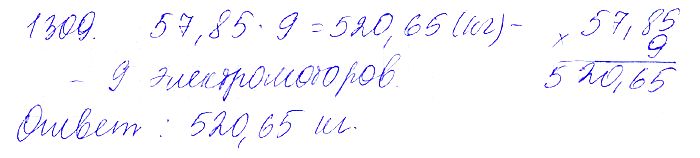 1309. 57,85 · 9 = 520,65 (кг) –
– 9 электромоторов.
Ответ : 520,65 кг.
57,85
× 9
520,65